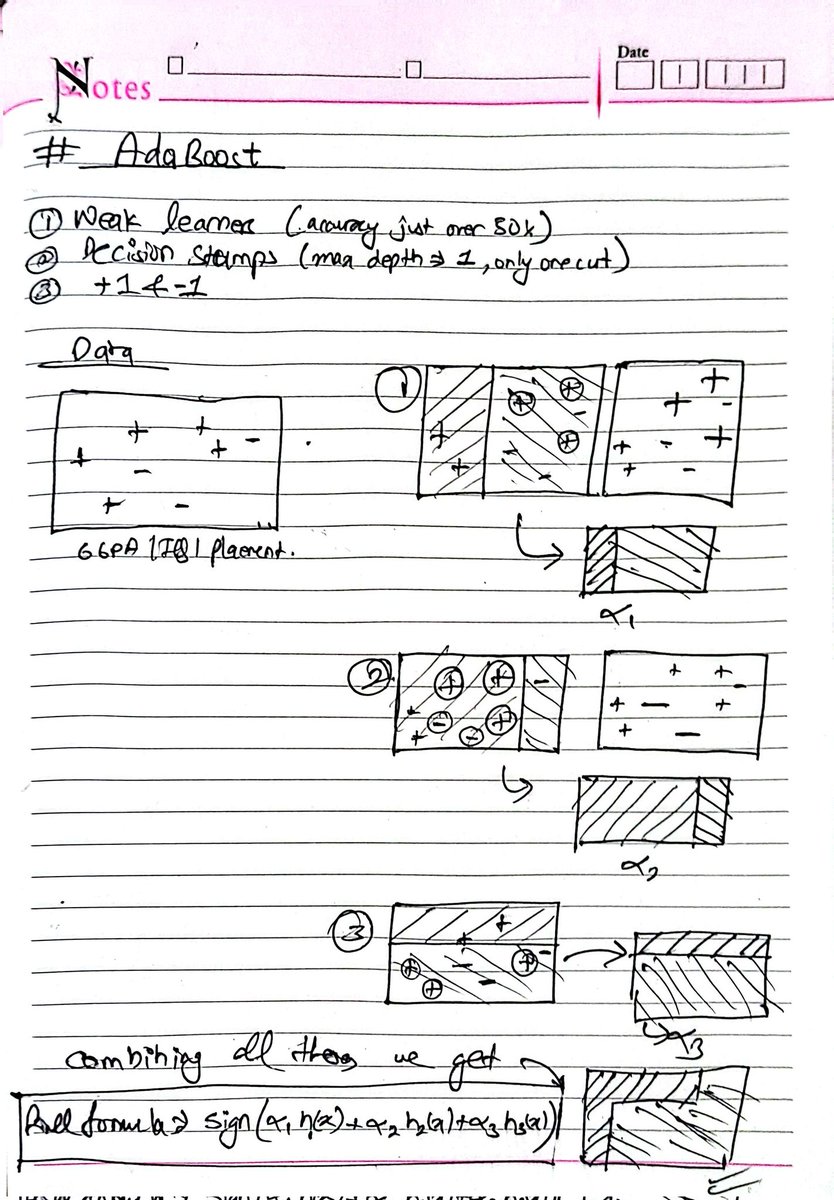 Notes
Date
# AdaBoost
① Weak learners (accuracy just over 50%)
② Decision stamps (max depth ⇒ 1, only one cut)
③ +1 & -1
Data
①
CGPA | IQ | placement.
α₁
②
α₂
③
α₃
combining all these we get
formula ⇒ sign(α₁ h₁(x) + α₂ h₂(x) + α₃ h₃(x))